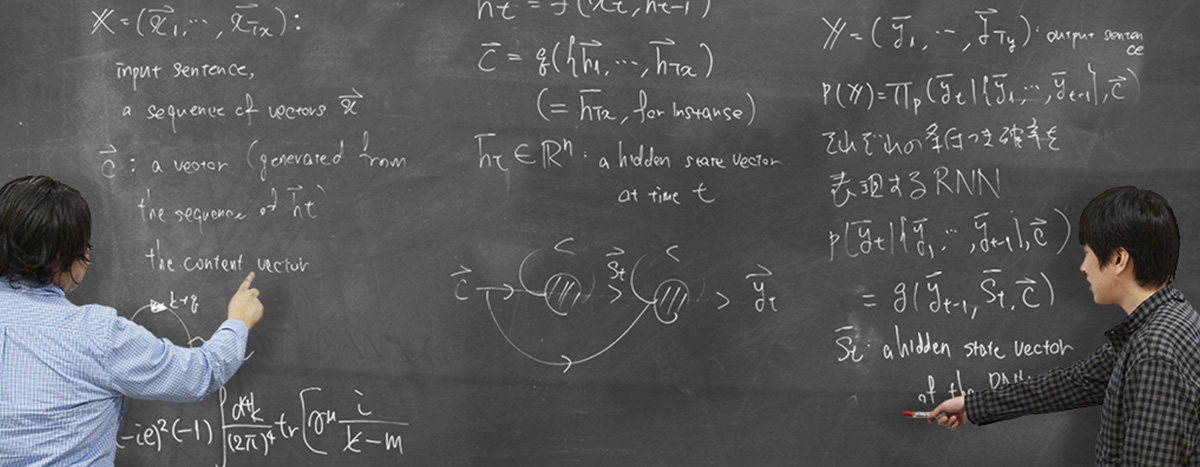 X = (x⃗₁, ⋯, x⃗Tx) :
input sentence,
a sequence of vectors x⃗
c⃗ : a vector (generated from
the sequence of h⃗t
the content vector
k+q
(-ie)²(-1) ∫ d⁴k/(2π)⁴ tr [γᵘ i/(k̸-m)
ht = f(xt, ht-1)
c⃗ = q({h⃗1, ⋯, h⃗Tx)
(= h⃗Tx, for instanse)
h⃗t ∈ Rⁿ : a hidden state vector
at time t
c⃗ → > s⃗t > y⃗t
Y = (y⃗₁, ⋯, y⃗Ty) : output senten
ce
P(Y) = Πp(y⃗t|{y⃗₁, ⋯, y⃗t-1}, c⃗)
それぞれの条件つき確率を
表現するRNN
p(y⃗t|{y⃗₁, ⋯, y⃗t-1}, c⃗)
= g(y⃗t-1, s⃗t, c⃗)
s⃗t : a hidden state vector
of the RNN